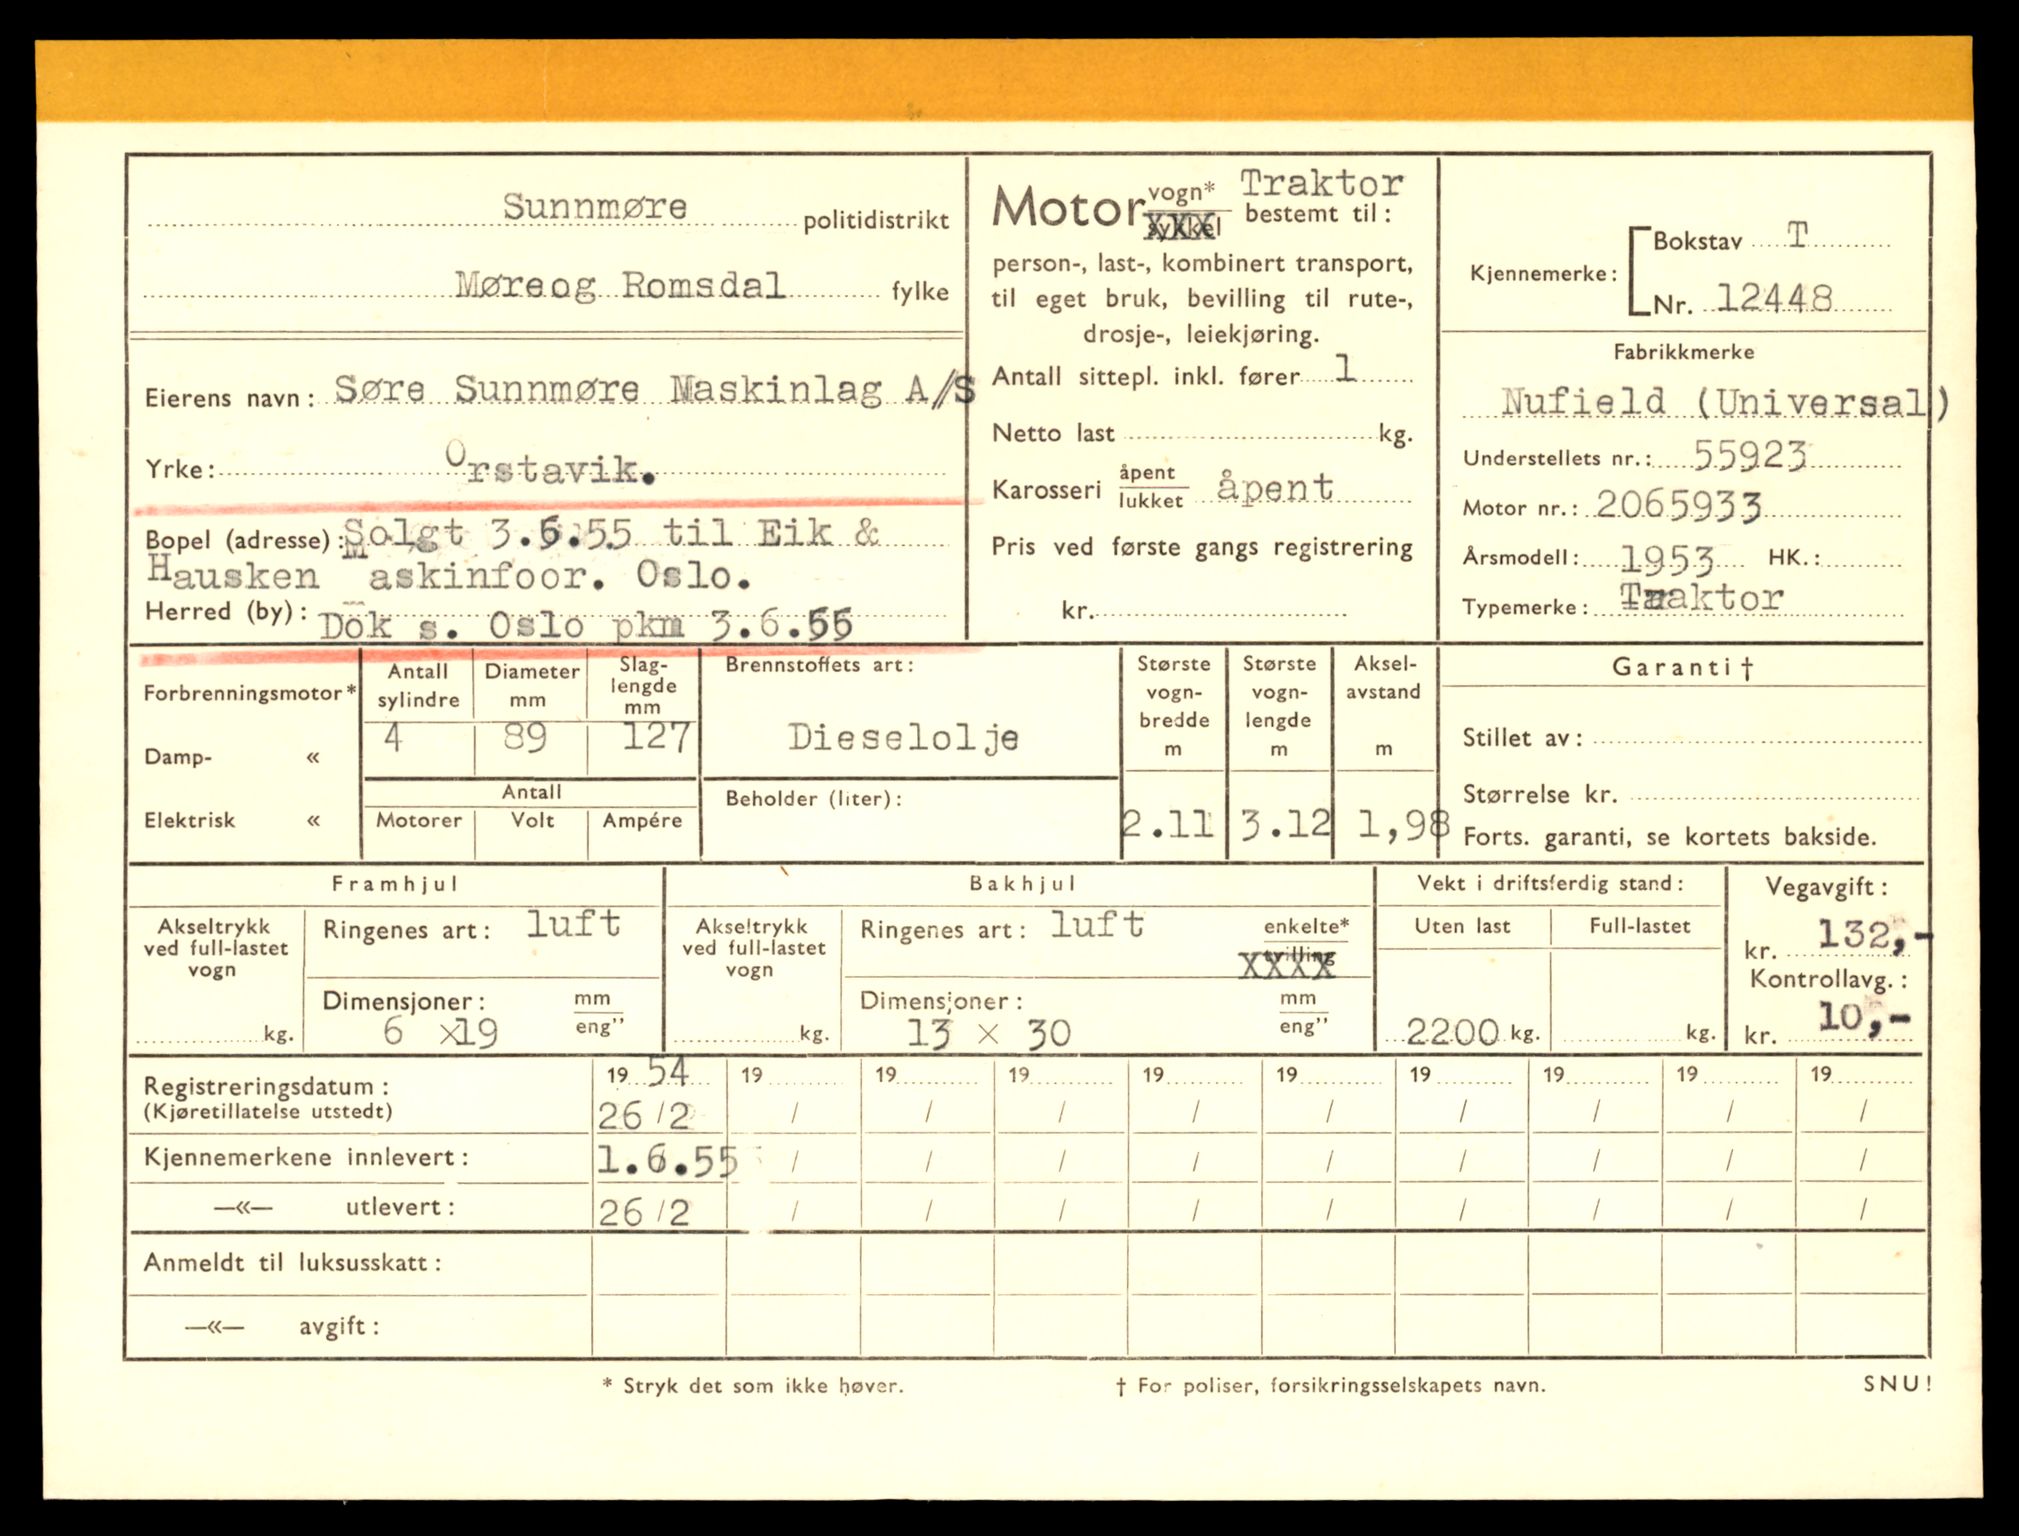 Sunnmøre politidistrikt
Møreog Romsdal fylke
Eierens navn: Søre Sunnmøre Maskinlag A/S
Yrke: Orstavik.
Bopel (adresse): Solgt 3.6.55 til Eik &
Hausken Maskinfoor. Oslo.
Herred (by): Dök s. Oslo pkm 3.6.55
Motor vogn* Traktor
sykkel bestemt til:
person-, last-, kombinert transport,
til eget bruk, bevilling til rute-,
drosje-, leiekjøring.
Antall sittepl. inkl. fører 1
Netto last kg.
Karosseri åpent åpent
lukket
Pris ved første gangs registrering
kr.
Kjennemerke: Bokstav T
Nr. 12448
Fabrikkmerke
Nufield (Universal)
Understellets nr.: 55923
Motor nr.: 2065933
Årsmodell: 1953 HK.:
Typemerke: Traktor
Forbrenningsmotor*
Damp- «
Elektrisk «
Antall sylindre Diameter mm Slag-lengde mm
4 89 127
Antall
Motorer Volt Ampére
Brennstoffets art:
Dieselolje
Beholder (liter):
Største vogn-bredde m Største vogn-lengde m Aksel-avstand m
2.11 3.12 1,98
Garanti †
Stillet av:
Størrelse kr.
Forts. garanti, se kortets bakside.
Framhjul
Akseltrykk ved full-lastet vogn
kg.
Ringenes art: luft
Dimensjoner: mm
6 x19 eng"
Bakhjul
Akseltrykk ved full-lastet vogn
kg.
Ringenes art: luft enkelte*
tvilling XXXX
Dimensjoner: mm
13 x 30 eng"
Vekt i driftsferdig stand:
Uten last Full-lastet
2200 kg. kg.
Vegavgift:
kr. 132,-
Kontrollavg.:
kr. 10,-
Registreringsdatum: 19 54 19 19 19 19 19 19 19 19 19
(Kjøretillatelse utstedt) 26/2 / / / / / / / / /
Kjennemerkene innlevert: 1.6.55 / / / / / / / / /
—«— utlevert: 26/2 / / / / / / / / /
Anmeldt til luksusskatt:
—«— avgift:
* Stryk det som ikke høver. † For poliser, forsikringsselskapets navn. SNU!